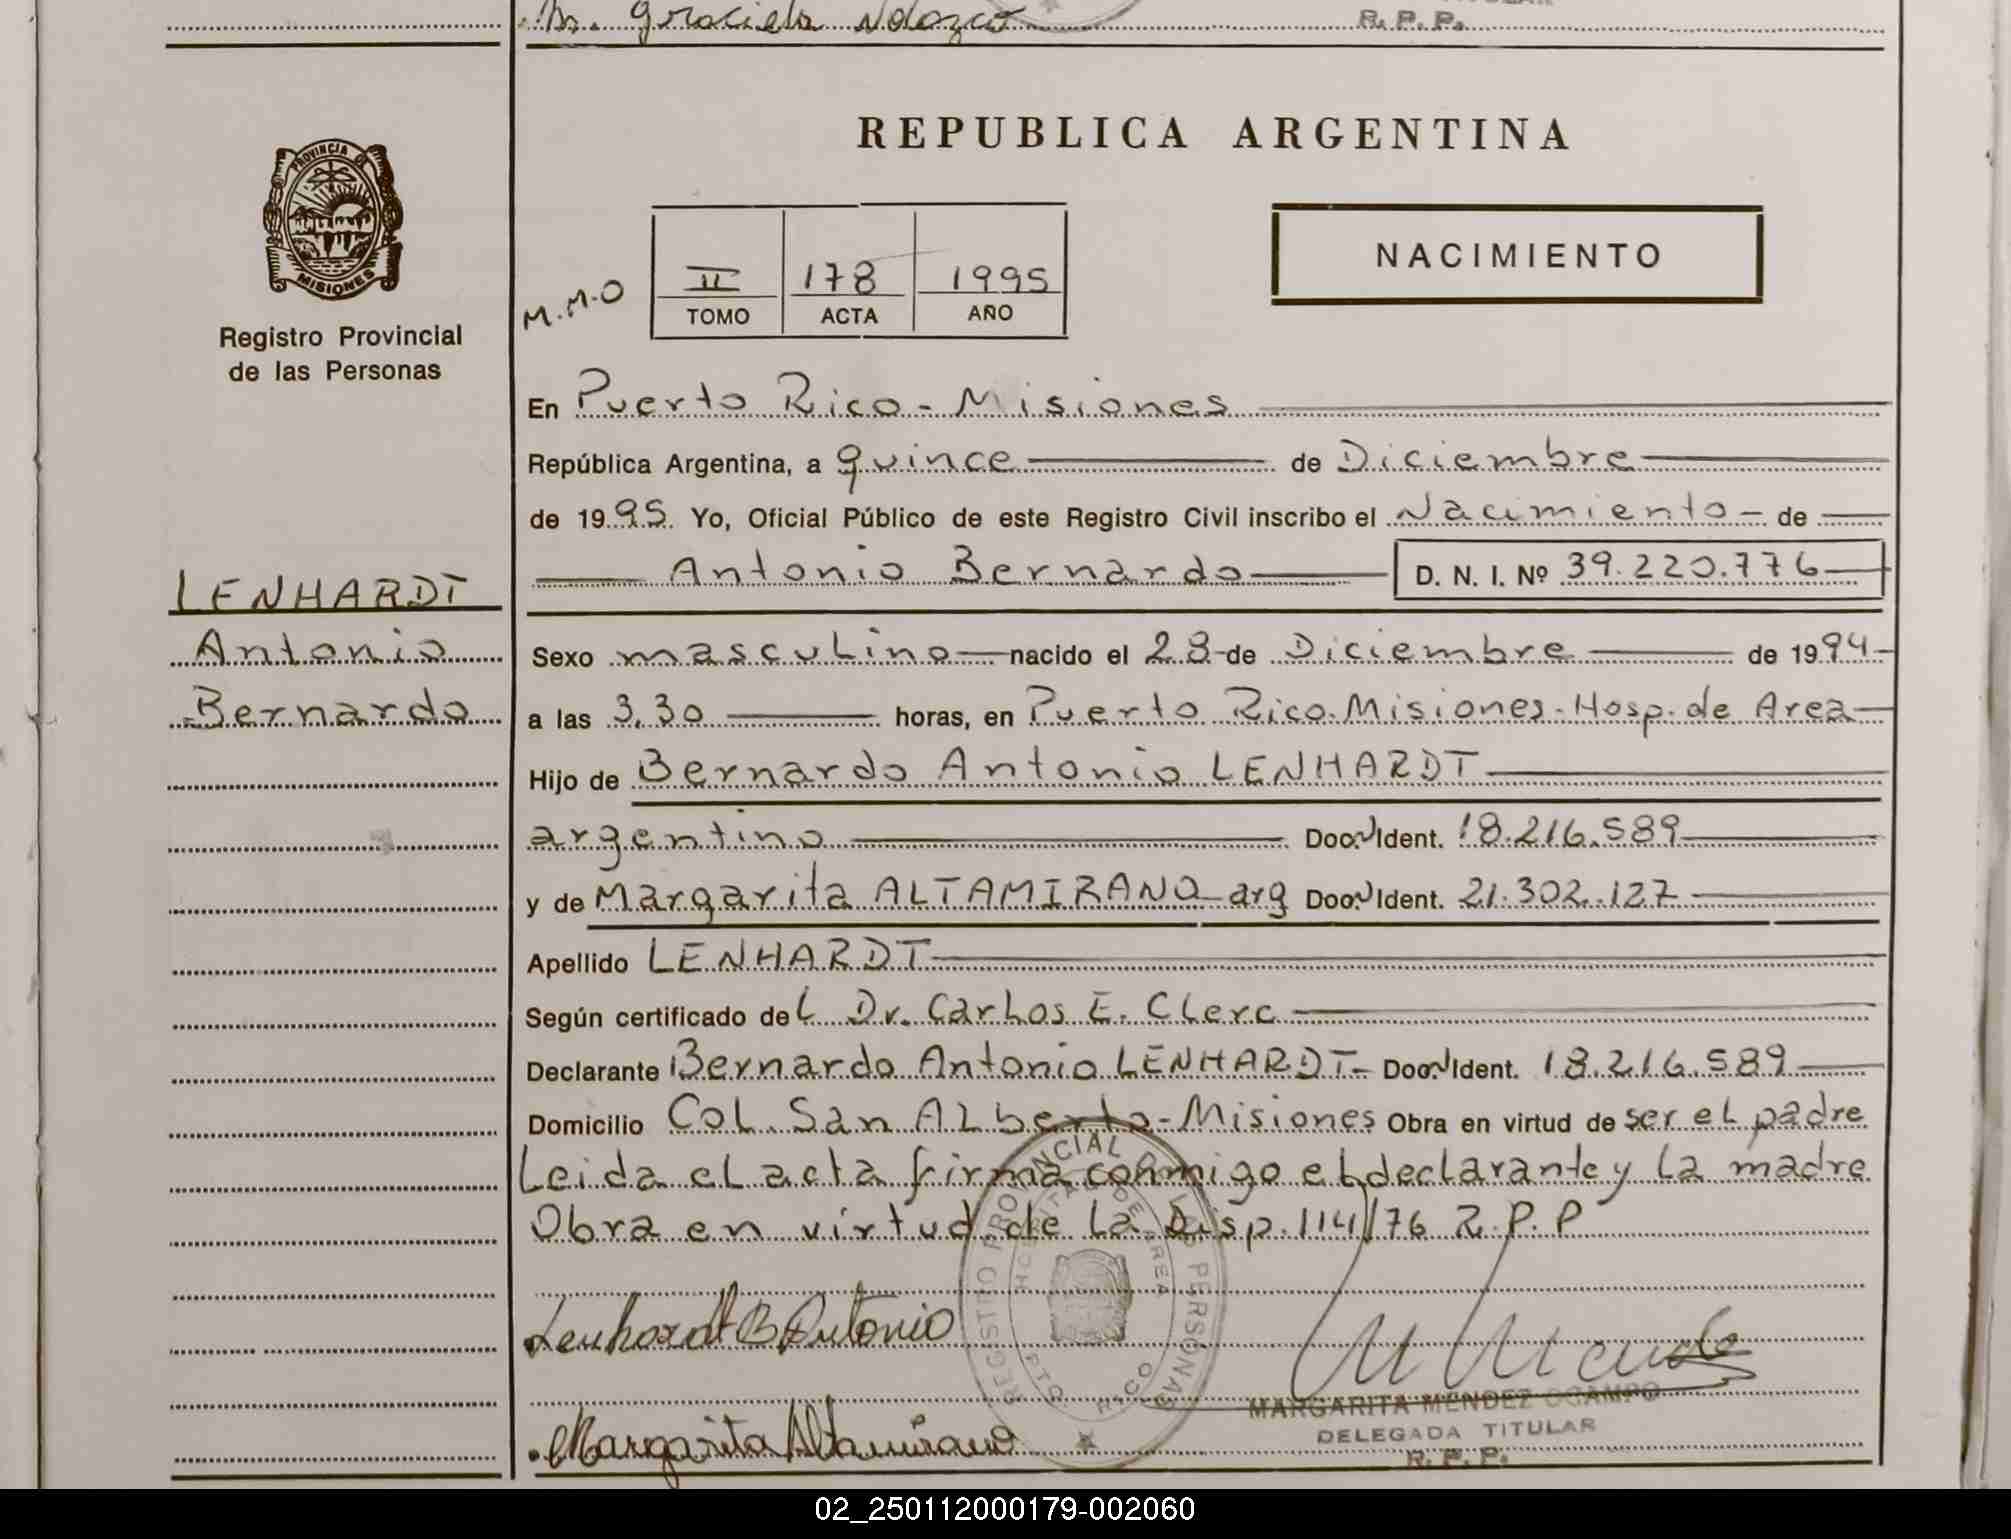 M. Graciela
R. P. P.
REPUBLICA ARGENTINA
PROVINCIA DE MISIONES
Registro Provincial
de las Personas
NACIMIENTO
M.M.O
II 178 1995
TOMO ACTA AÑO
En Puerto Rico - Misiones
República Argentina, a quince de Diciembre
de 1995 Yo, Oficial Público de este Registro Civil inscribo el Nacimiento - de
Antonio Bernardo D. N. I. Nº 39.220.776
LENHARDT
Antonio
Bernardo
Sexo masculino nacido el 28 de Diciembre de 1994
a las 3,30 horas, en Puerto Rico. Misiones - Hosp. de Area
Hijo de Bernardo Antonio LENHARDT
argentino Doc. Ident. 18.216.589
y de Margarita ALTAMIRANO arg Doc. Ident. 21.302.127
Apellido LENHARDT
Según certificado del Dr. Carlos E. Clerc
Declarante Bernardo Antonio LENHARDT - Doc. Ident. 18.216.589
Domicilio Col. San Alberto - Misiones Obra en virtud de ser el padre
Leida el acta firma conmigo el declarante y la madre
Obra en virtud de la Disp. 114/76 R.P.P
REGISTRO PROVINCIAL DE LAS PERSONAS
HOSPITAL DE AREA
PTO RICO
Lenhardt B Antonio
MARGARITA MENDEZ OCAMPO
DELEGADA TITULAR
R. P. P.
Margarita Altamirano
02_250112000179-002060